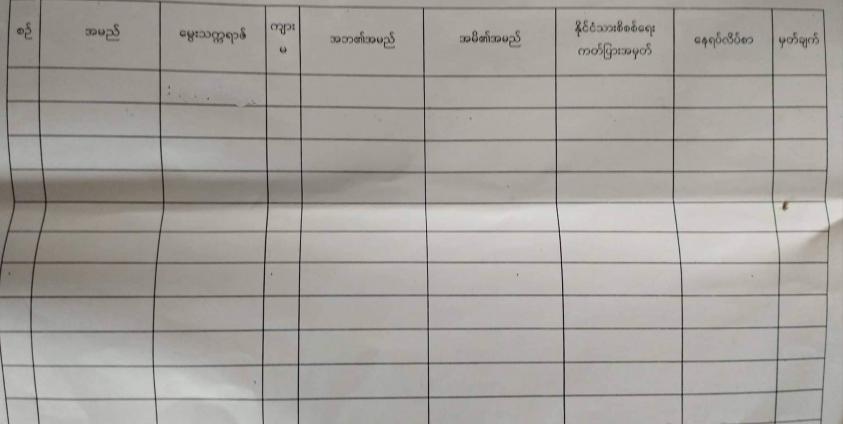 စဉ်
အမည်
မွေးသက္ကရာဇ်
ကျား
မ
အဘ၏အမည်
အမိ၏အမည်
နိုင်ငံသားစိစစ်ရေး
ကတ်ပြားအမှတ်
နေရပ်လိပ်စာ
မှတ်ချက်